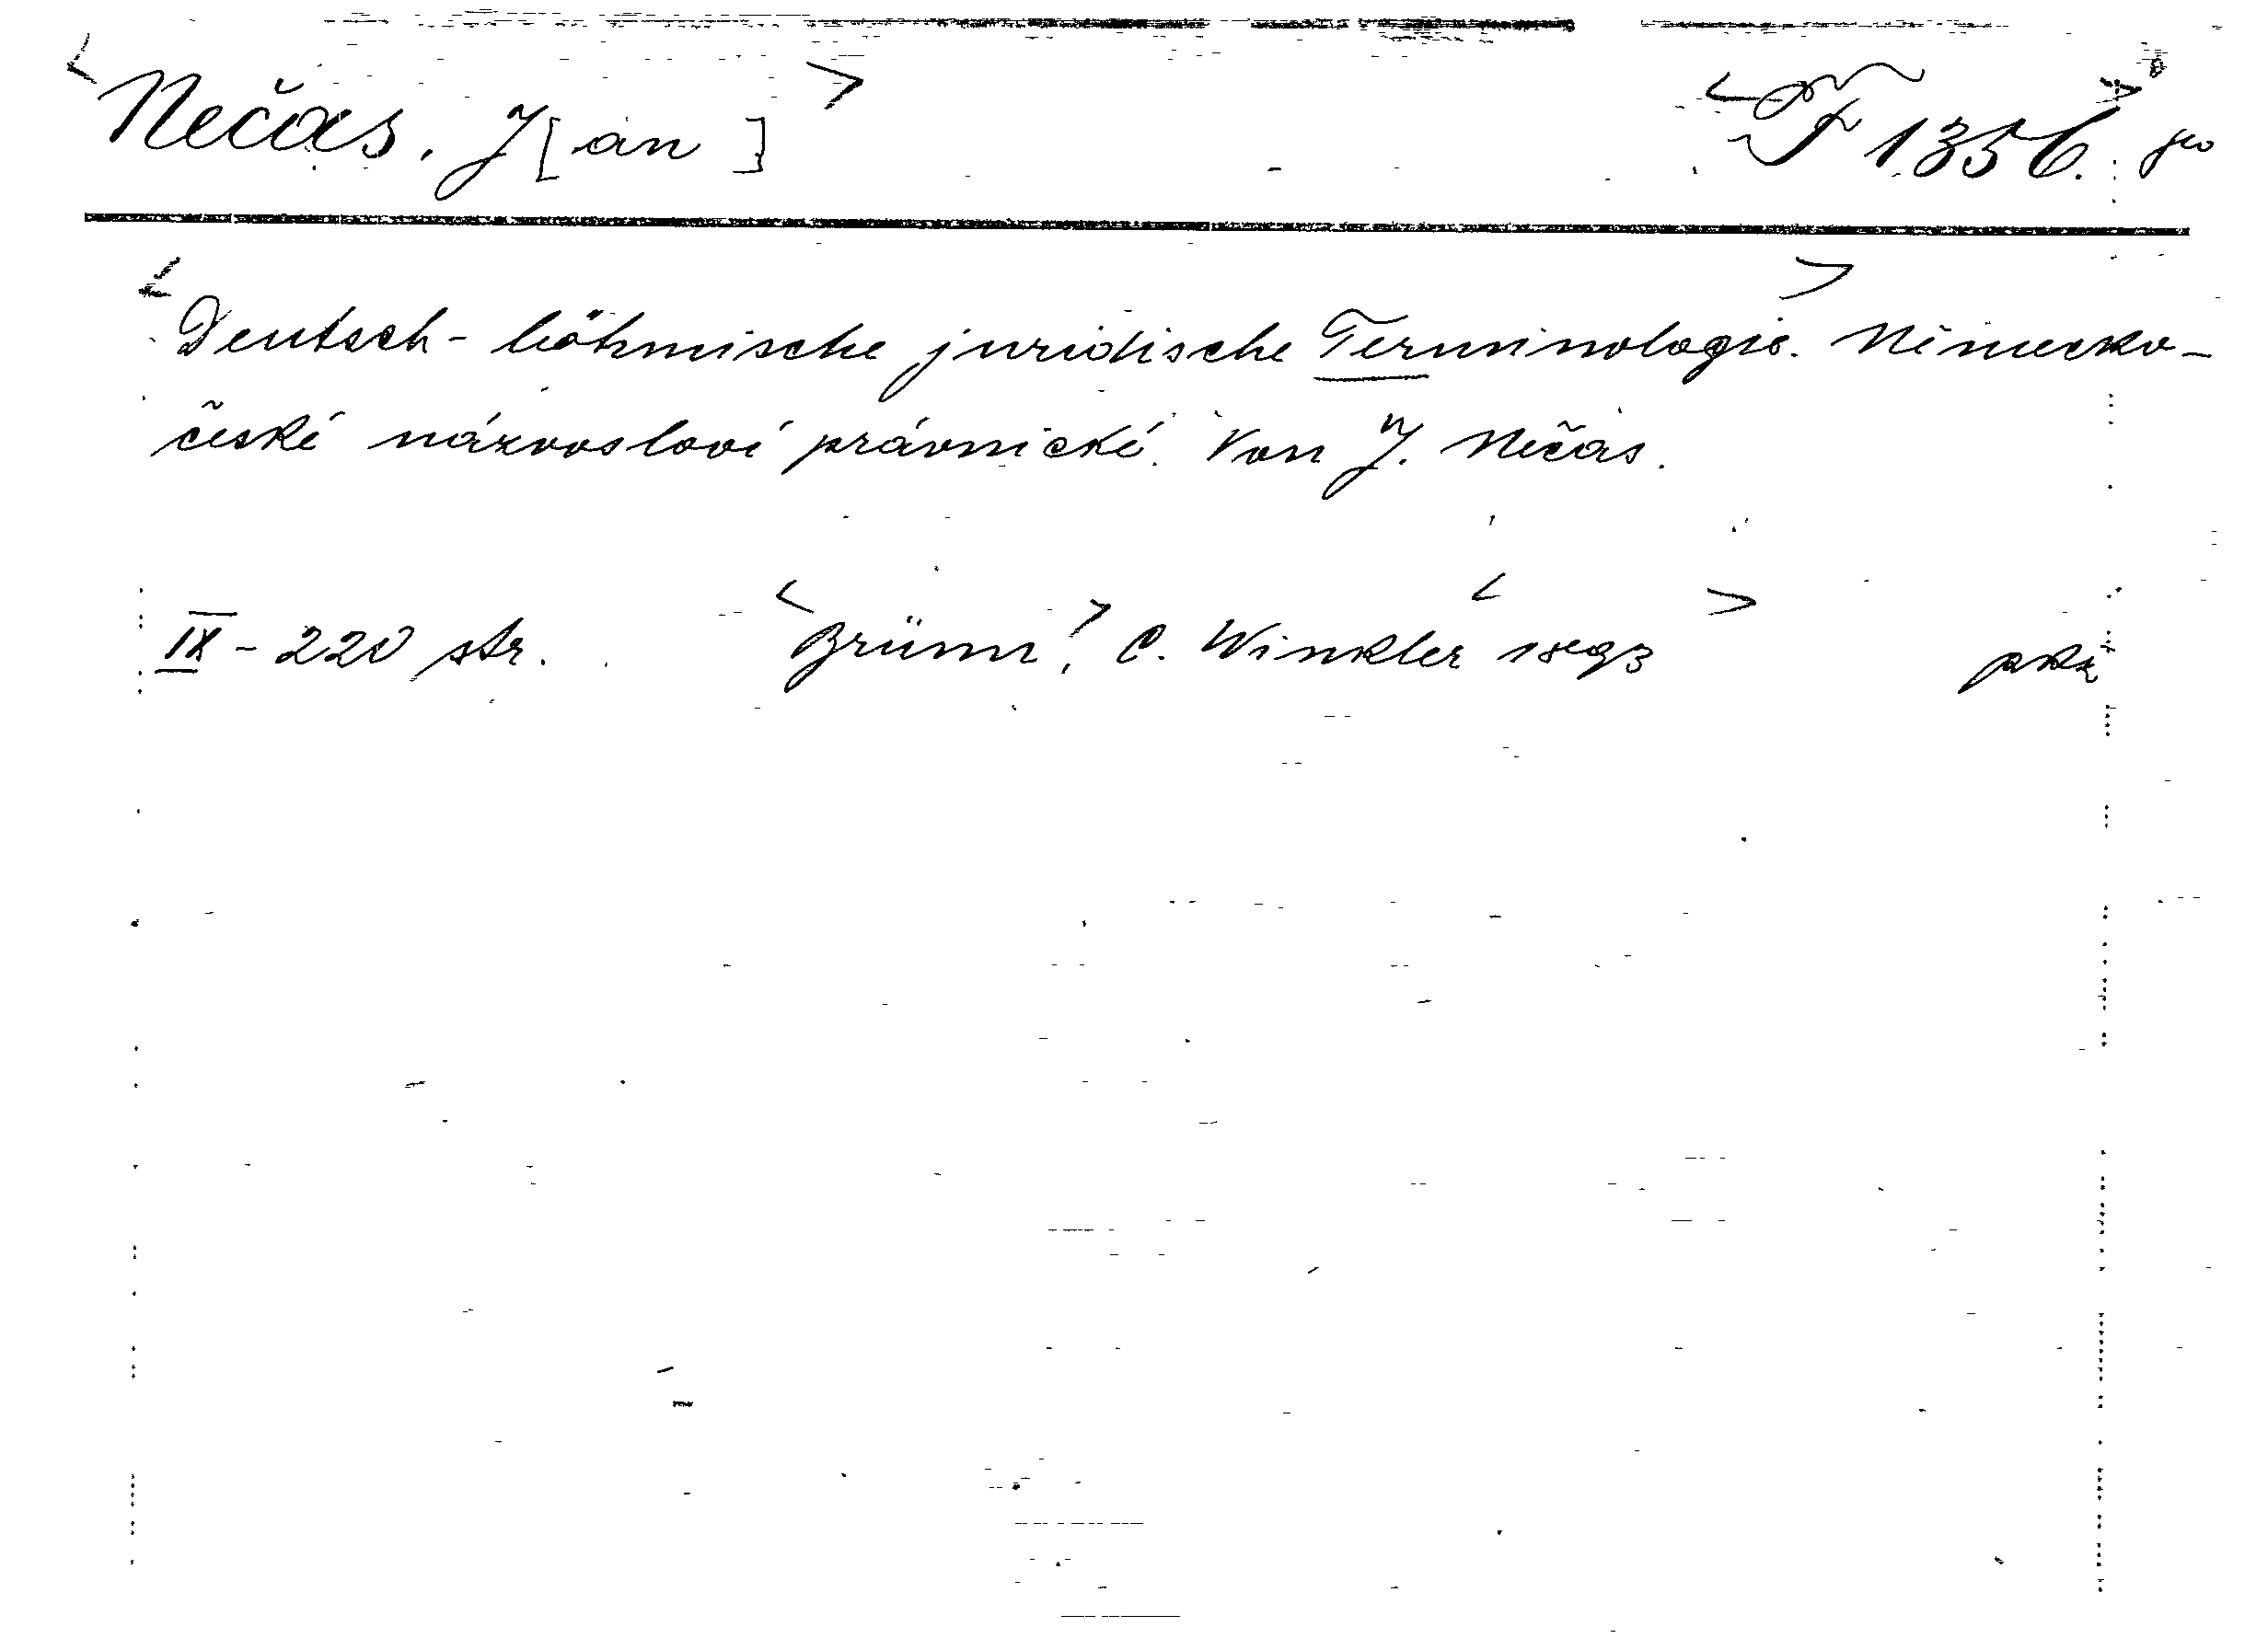 <Nečas, J[an]> <F 1356.>
<Deutsch-böhmische juridische Terminologie.> Německo-
české názvosloví právnické. Von J. Nečas.
IX - 220 str. <Brünn>, C. Winkler <1893>